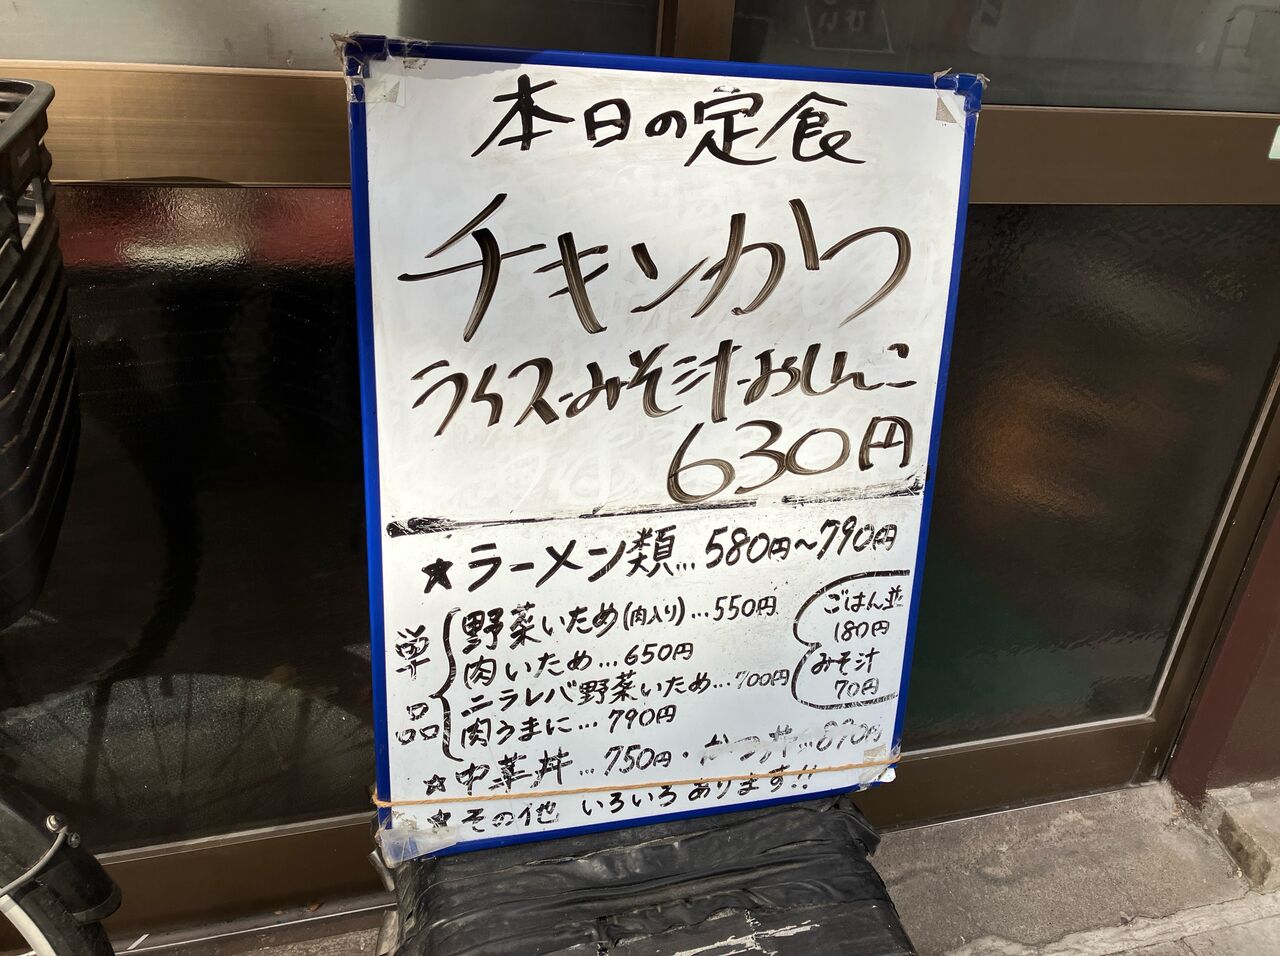 本日の定食
チキンかつ
ライス・みそ汁・おしんこ
630円
★ラーメン類…580円〜790円
単品
野菜いため(肉入り)…550円
肉いため…650円
ニラレバ野菜いため…700円
肉うまに…790円
ごはん並
180円
みそ汁
70円
★中華丼…750円・かつ丼…890円
★その他 いろいろあります!!